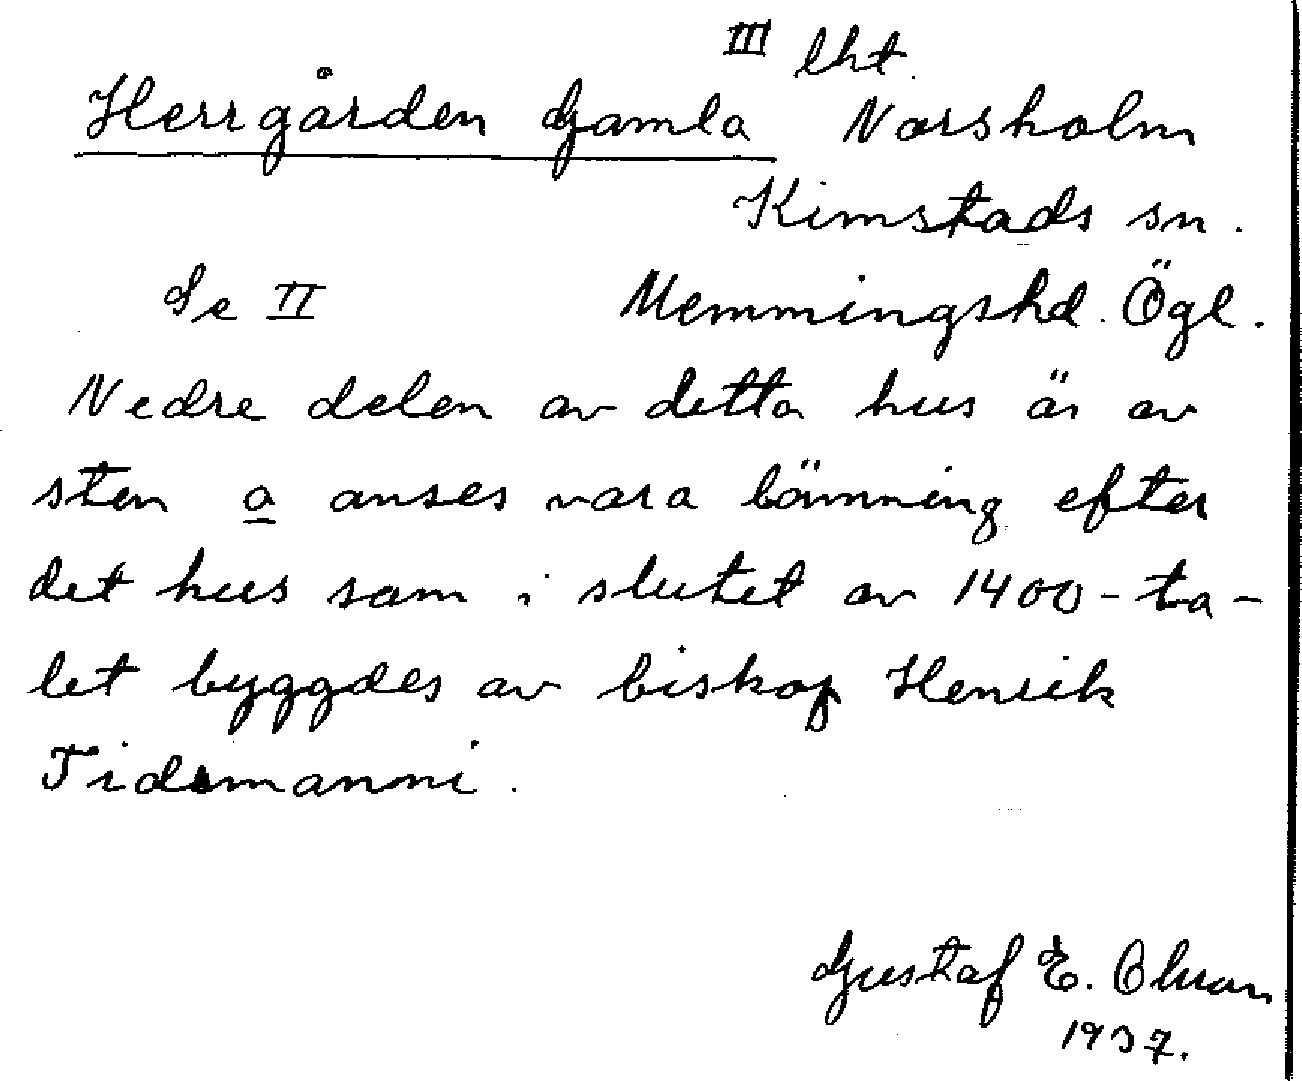 III lht.
Herrgården Gamla Norsholm
Kimstads sn.
Se II Memmingshd. Ögl.
Nedre delen av detta hus är av
sten o anses vara lämning efter
det hus som i slutet av 1400-ta-
let byggdes av biskop Henrik
Tidemanni.
Gustaf E. Olson
1937.